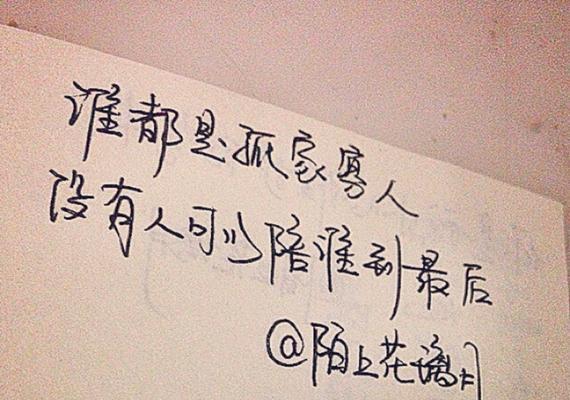 谁都是孤家寡人
没有人可以陪谁到最后
@陌上花漓月